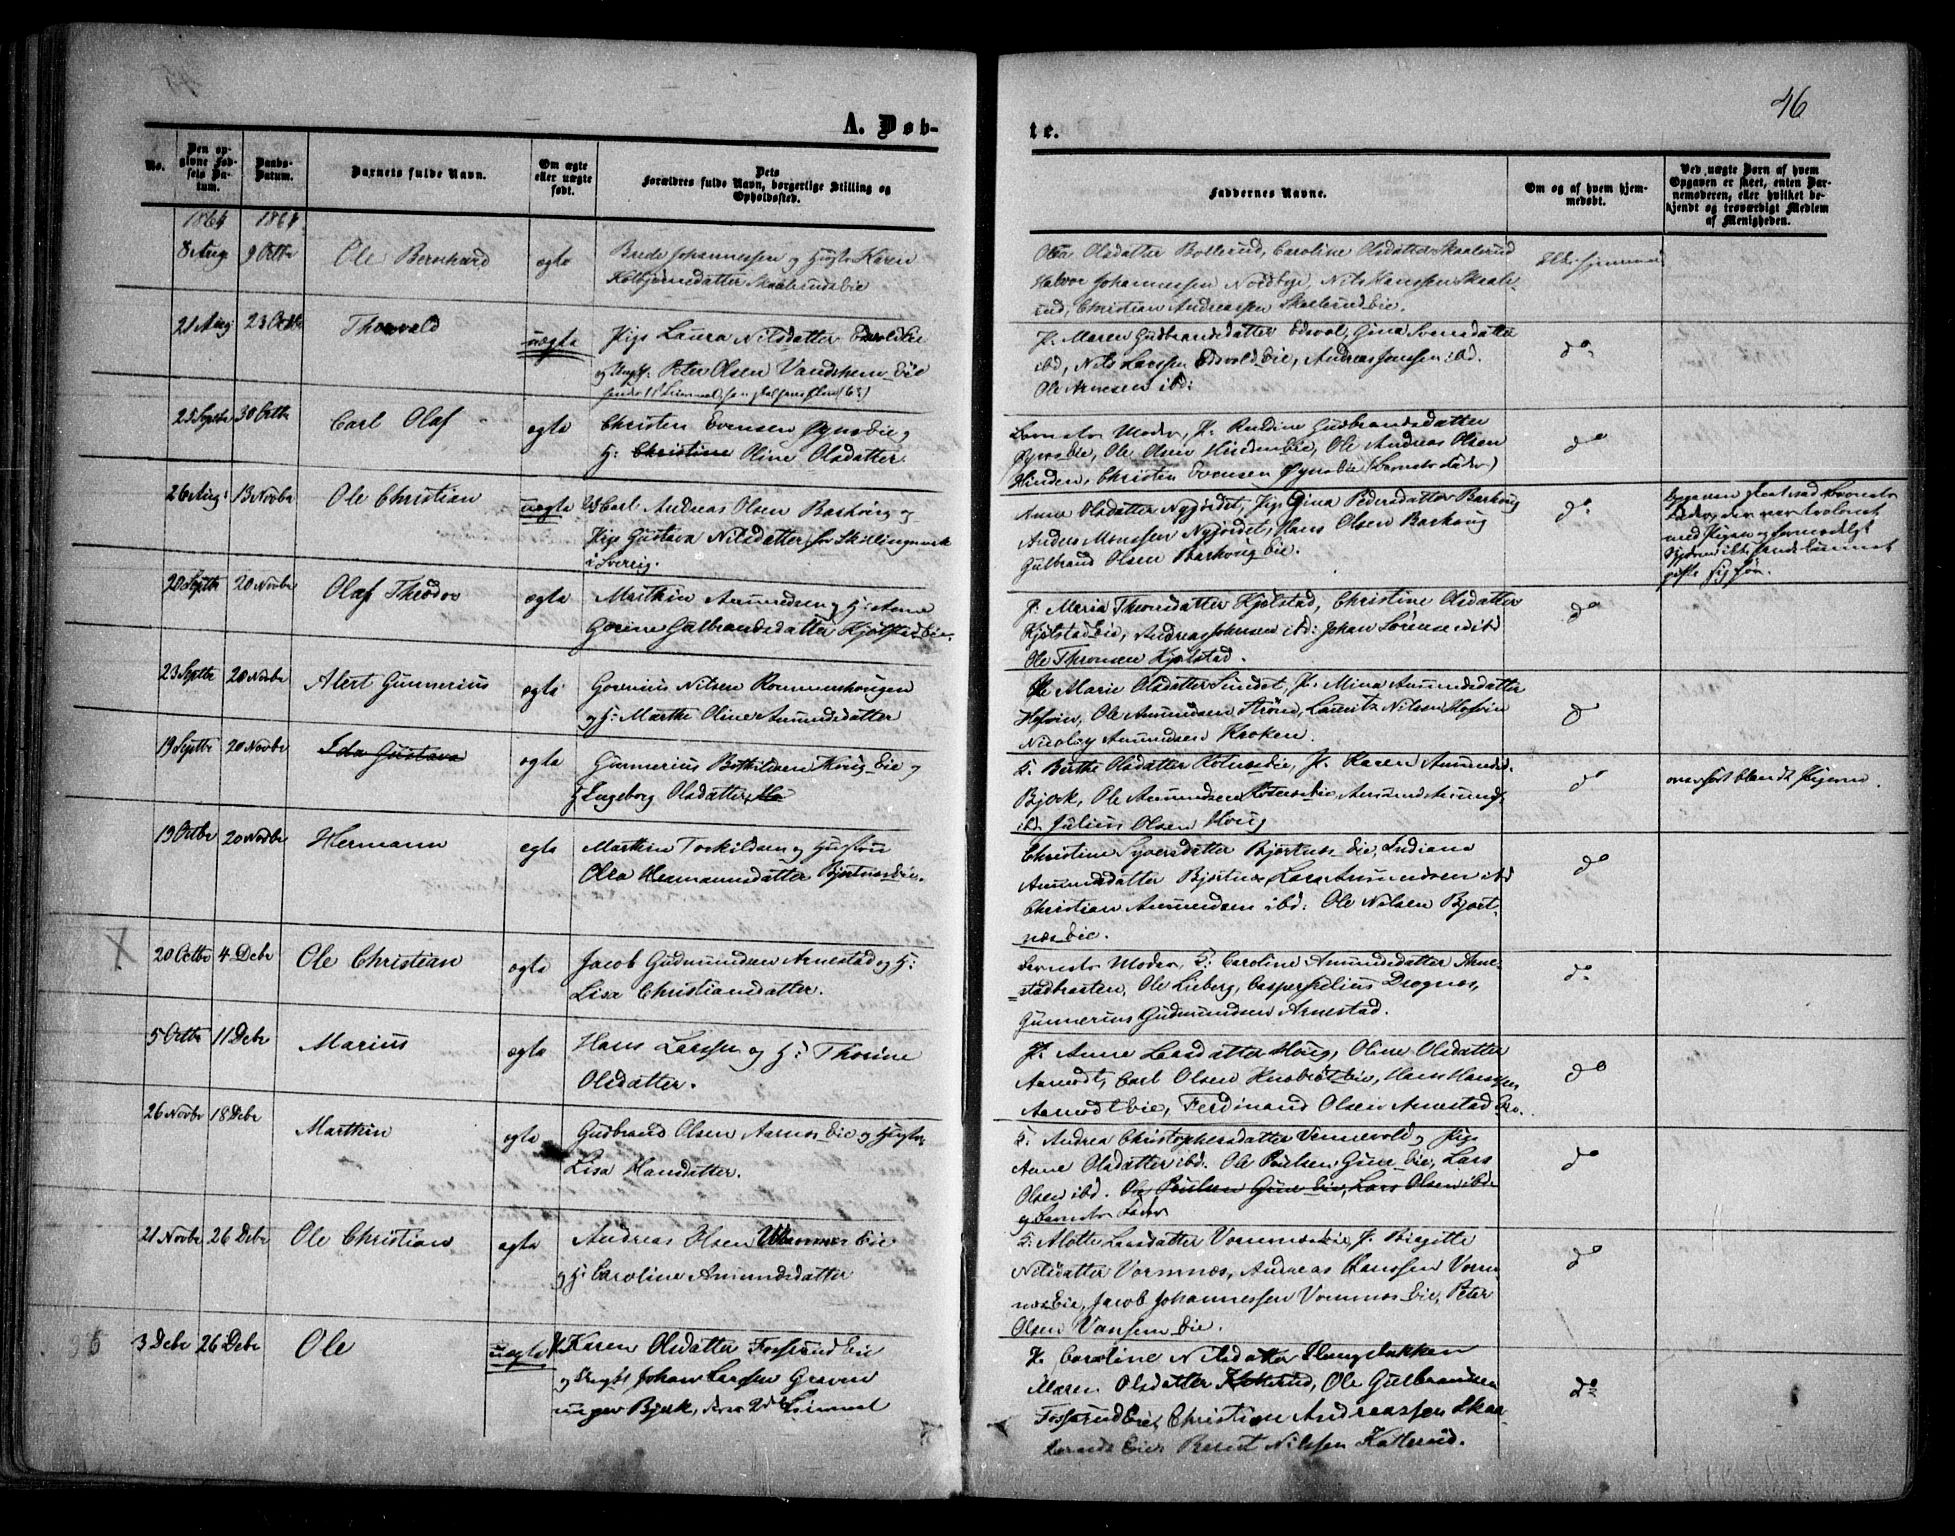 46
A. Døb-
te.
No.
Den op-
givne Fød-
sels Da-
tum.
Daabs-
Datum.
Barnets fulde Navn.
Om ægte
eller uægte
født.
Dets
Forældres fulde Navn, borgerlige Stilling og
Opholdssted.
Faddernes Navne.
Om og af hvem hjem-
medøbt.
Ved uægte Børn af hvem
Opgaven er skeet, enten Bar-
nemoderen, eller hvilket be-
kjendt og troværdigt Medlem
af Menigheden.
1864 1864
8 Aug 9 Octbr Ole Bernhard ægte
Brede Johannessen og Hustr Karen
Kolbjørnsdatter Skaalerudseie
Olea Olsdatter Bollerud, Caroline Olsdatter Skaalerud
Halvor Johannessen Nordbye, Nils Hanssen Skaale-
rud, Christian Andreassen Skaalerudeie.
Ikke hjemmed
21 Aug 23 Octbr Thorvald uægte
Pige Laura Nilsdatter Edsvoldeie
og Ungk: Peter Olsen Vandsemeie
P. Maren Gudbrandsdatter Edsvol, Gina Svensdatter
ibd, Nils Larssen Edsvoldeie, Andreas Jenssen ibd.
Ole Arnesen ibd:
do
25 Septbr 30 Octbr Carl Olaf ægte
Christen Evensen Øynseie og
H: Christine Oline Olsdatter.
Barnets Moder, P. Randine Gudbrandsdatter
Øynseie, Ole Olsen Hindeneie, Ole Andreas Olsen
Hinden, Christen Evensen Øynseie (Barnets Fader)
do
26 Aug 13 Novbr Ole Christian uægte
Carl Andreas Olsen Barhoug og
Pige Gustava Nilsdatter for Skillingmark
i Sverrig.
Anna Olsdatter Nyjordet, Pige Gina Pedersdatter Barhoug
Anders Monssen Nyjordet, Hans Olsen Barhoug
Gulbrand Olsen Barhougeie.
do
Opgaven skeet ved Barnets
Fader, der var trolovet
med Pigen og formodeligt
gifte sig før.
20 Septbr 20 Novbr Olaf Theodor ægte
Marthin Amundsen og H: Anne
Gorine Gulbrandsdatter Kjølstadeie.
P. Maria Thronsdatter Kjølstad, Christine Olsdatter
Kjølstadeie, Andreas Johnsen ibd: Johan Sørensen ibd
Ole Thronsen Kjølstad.
do
23 Septbr 20 Novbr Alert Gunnerius ægte
Gorenius Nilsen Rommenhougen
og H: Marthe Oline Amundsdatter
Marie Olsdatter Sundet, P. Mina Amundsdatter
Hofvin, Ole Amundsen Strøm, Lauritz Nilsen Hofvin
Nicolay Amundsen Kroken.
do
19 Septbr 20 Novbr Ida Gustava ægte
Gunnerius Bothildsen Hougeie og
H Ingeborg Olsdatter
Berthe Olsdatter Rotneseie, P. Karen Amundsd.
Bjørk, Ole Amundsen Rotneseie, Amund Amunds.
ibd. Julius Olsen Houg
do
overført blandt Pigerne
19 Octbr 20 Novbr Hermann ægte
Marthin Torkildsen og Hustru
Olea Hermannsdatter Bjørtneseie.
Christine Syversdatter Bjørtneseie, Indiana
Amundsdatter Bjørtnes, Lars Amundsen ibd
Christian Amundsen ibd: Ole Nilsen Bjørt-
neseie.
do
X 20 Octbr 4 Debr Ole Christian ægte
Jacob Gudmundsen Arnestad og H:
Lisa Christiansdatter.
Barnets Moder, Caroline Amundsdatter Arne-
stadbraaten, Olé Lieberg, Casper Julius Drognes,
Gunnerius Gudmundsen Arnestad.
do
5 Octbr 11 Debr Marius ægte
Hans Larssen og H: Thorine
Olsdatter.
P. Anne Larsdatter Houg, Oline Olsdatter
Aamodt, Carl Olsen Husebøleie, Hans Hanssen
Aamodteie, Ferdinand Olsen Arnestad
do
26 Novbr 18 Debr Marthin ægte
Gudbrand Olsen Aarneseie og Hustr
Lisa Hansdatter.
Andrea Christophersdatter Vennevold og Pige
Anne Olsdatter ibd. Ole Poulsen Guneie, Lars
Olsen ibd. Ole Poulsen Guneie, Lars Olsen ibd.
og Barnets Fader
do
21 Novbr 26 Debr Ole Christian ægte
Andreas Olsen Vormneseie
og H: Caroline Amundsdatter
Alotte Larsdatter Vormneseie, P. Birgitte
Nilsdatter Vormnes, Andreas Hanssen Vorm-
neseie, Jacob Johannessen Vormneseie, Peter
Olsen Vansemeie.
do
3 Debr 26 Debr Ole uægte
Karen Olsdatter Fosserudeie
og Ungk: Johan Larssen Graven
under Bjørk, deres 2det Leiermaal
P. Caroline Nilsdatter Slangeløkken
Maren Olsdatter Katterud, Ole Gulbrandsen
Fosserudeie, Christian Andreassen Skaa-
lerudseie Berent Nilssen Katterud.
do